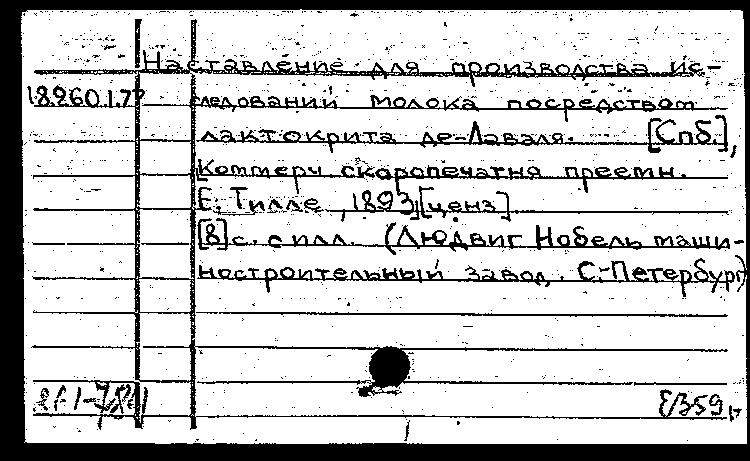 Наставление для производства ис-
18.260.1.77 следований молока посредством
лактокрита де-Лаваля. [Спб.],
Коммерч. скоропечатня преемн.
Е. Тилле, 1893, [ценз]
[8]с. с илл. (Людвиг Нобель маши-
ностроительный завод, С.-Петербург)
Е/359